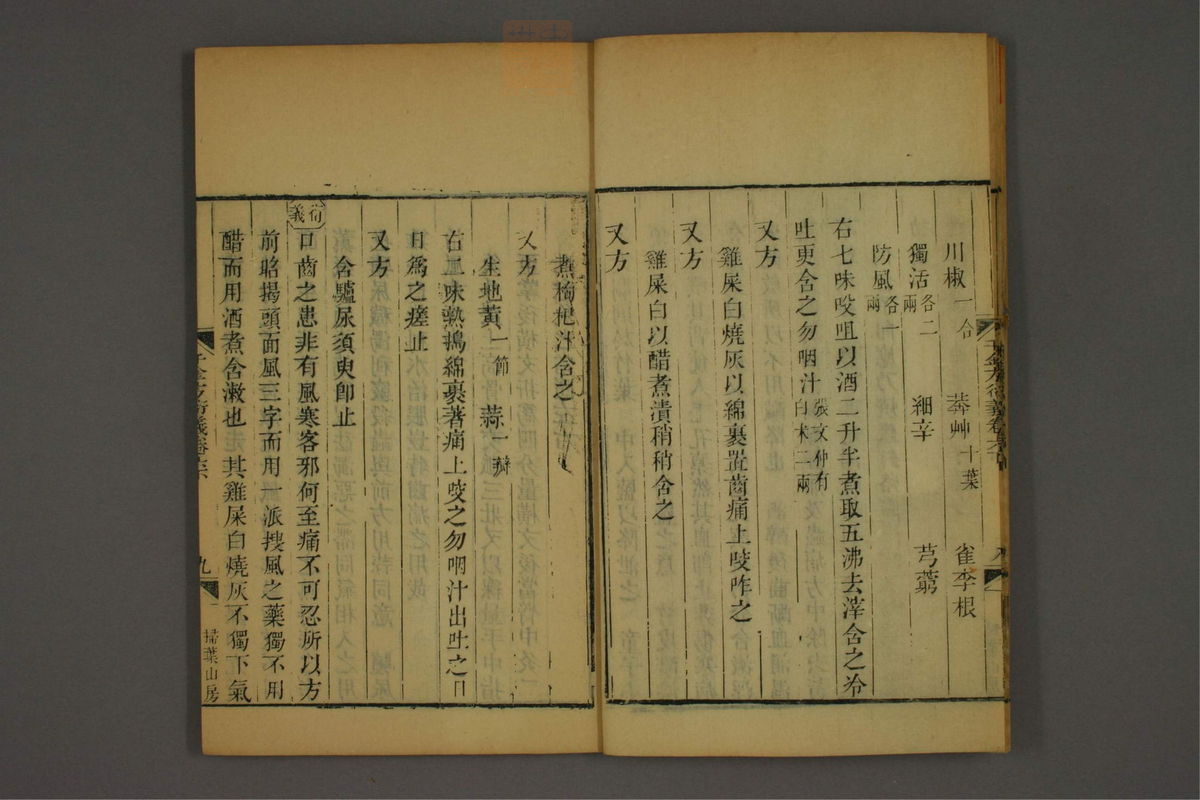 川椒一合 莽艸十葉 雀李根
獨活各二兩 細辛 芎藭
防風各一兩
右七味㕮咀以酒二升半煮取五沸去滓含之冷
吐更含之勿咽汁張文仲有白朮二兩
又方
雞屎白燒灰以綿裹置齒痛上咬咋之
又方
雞屎白以醋煮漬稍稍含之
又方
煮枸杞汁含之
又方
生地黃一節 蒜一瓣
右二味熟搗綿裹著痛上咬之勿咽汁出吐之日
日為之瘥止
又方
含驢尿須臾卽止
衍義
口齒之患非有風寒客邪何至痛不可忍所以方
前昭揭頭面風三字而用一派搜風之藥獨不用
醋而用酒煮含漱也 其雞屎白燒灰不獨下氣
千金方衍義卷六
九
掃葉山房